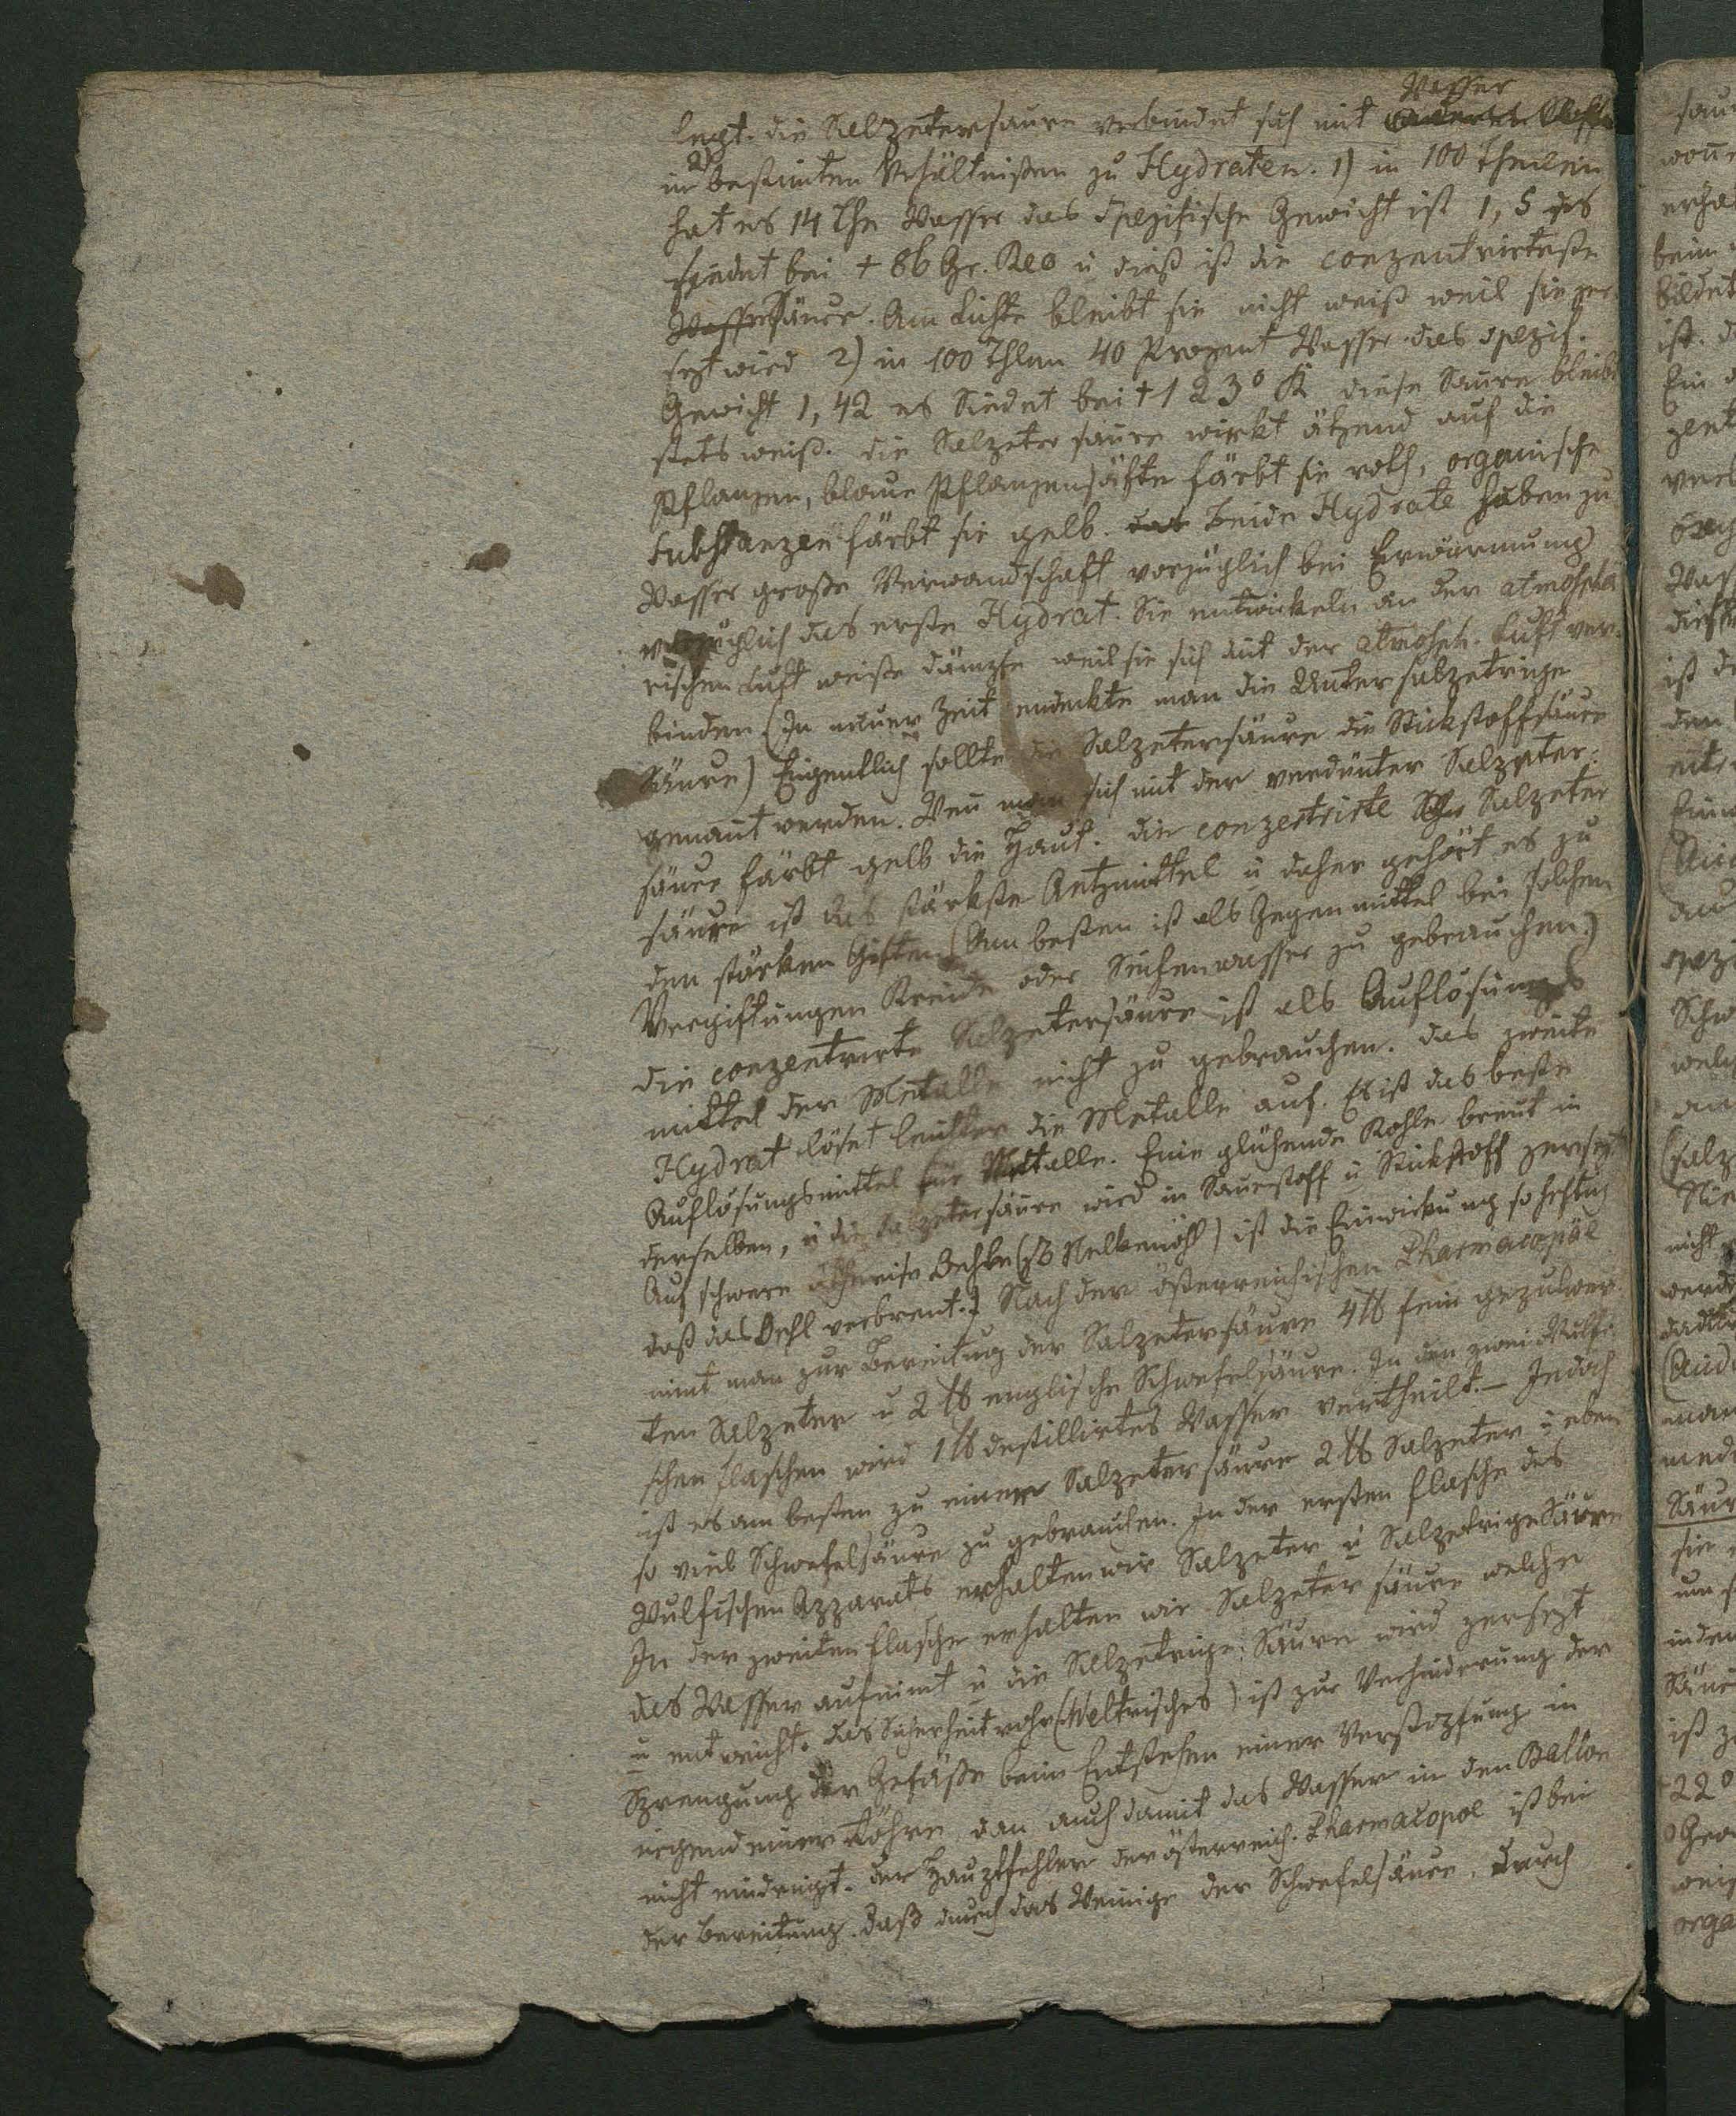 Wasser
legt. die Salzetersaure verbindet sich mit
in 2 bestimten Vrhältnißen zu Hydraten. 1) in 100 Theilen
hat es 14 Thl Wasser das Spezifische Gewicht ist 1,5 es
siedet bei + 86 Gr. Reo u dieß ist die conzentrirteste
Wasser Säure. Am Lichte bleibt sie nicht weiß weil sie zer-
sezt wird 2) in 100 Thlen 40 Prozent Wasser das spezif.
Gewicht 1,42 es Siedet bei + 123° R diese Saure bleibt
stets weiß. die Salzetersaure wirkt ätzend auf die
Pflanzen, blaue Pflanzensäfte färbt sie roth, organische
Substanzen färbt sie gelb. das Beide Hydrate haben zu
Wasser große Verwandschaft vorzüglich bei Erwärmung
vorzüglich das erste Hydrat. Sie entwickeln an der atmosphä
rischen Luft weiße dämpfe weil sie sich mit der atmosph. Luft ver-
binden (In neuer Zeit endeckte man die Untersalzetrige
Säure) Eigentlich sollte die Salzetersäure die Stickstoffsäure
genant werden. Wen man sich mit der verdünter Salzeter-
säure färbt gelb die Haut. die conzentrirte Salzeter
säure ist das stärkste Aetzmittel u daher gehört es zu
den starken Giften (Am besten ist als Gegenmittel bei solchen
Vergiftungen Kreide oder Seifenwasser zu gebrauchen.)
die conzentrirte Salzetersäure ist als Auflösungs
mittel der Metalle nicht zu gebrauchen. das zweite
Hydrat löset leichter die Metalle auf. Es ist das beste
Auflösungsmittel für Metalle. Eine glühende Kohle brent in
derselben, u die Salzetersäure wird in Sauerstoff u Stickstoff zersezt
Auf schwere ätherise Oehle (zb Nelkenöhl) ist die Einwirkung so heftig
daß das Oehl verbrent.) Nach der österreichischen Pharmacopöe
nimt man zur Bereitung der Salzetersäure 4 ℔ fein gepulver
ten Salzeter u 2 ℔ englische Schwefelsäure. In den zwei Wulfi
schen Flaschen wird 1 ℔ destillirtes Wasser vertheilt. – Jedoch
ist es am besten zu einer Salzetersäure 2 ℔ Salzeter u eben
so viel Schwefelsäure zu gebrauchen. In der ersten Flasche des
Wulfischen Apparats erhalten wir Salzeter u Salzetrige Säure
In der zweiten Flasche erhalten wir Salzetersäure welche
das Wasser aufnimt u die Salzetrige Säure wird zersezt
u entweicht. das Sicherheitrohr (Weltrisches) ist zur Verhinderung der
Sprengung der Gefäße beim Entstehen einer Verstopfung in
irgend einer Röhre dan auch damit das Wasser in den Ballon
nicht eindringt. der Hauptfehler der österreich. Pharmacopoe ist bei
der Bereitung. daß durch das Wenige der Schwefelsäure. Durch